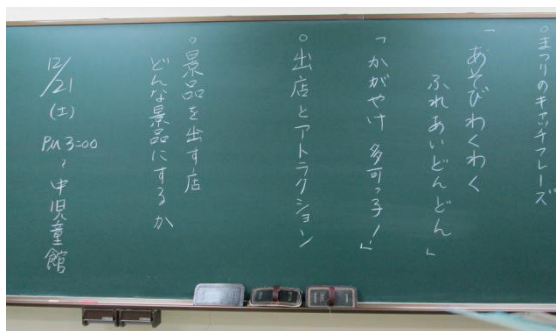 ○まつりのキャッチフレーズ
「あそびわくわく
ふれあいどんどん」
「かがやけ 多可っ子!」
○出店とアトラクション
○景品を出す店
どんな景品にするか
12/21
(土)
PM 3:00
~
中児童館